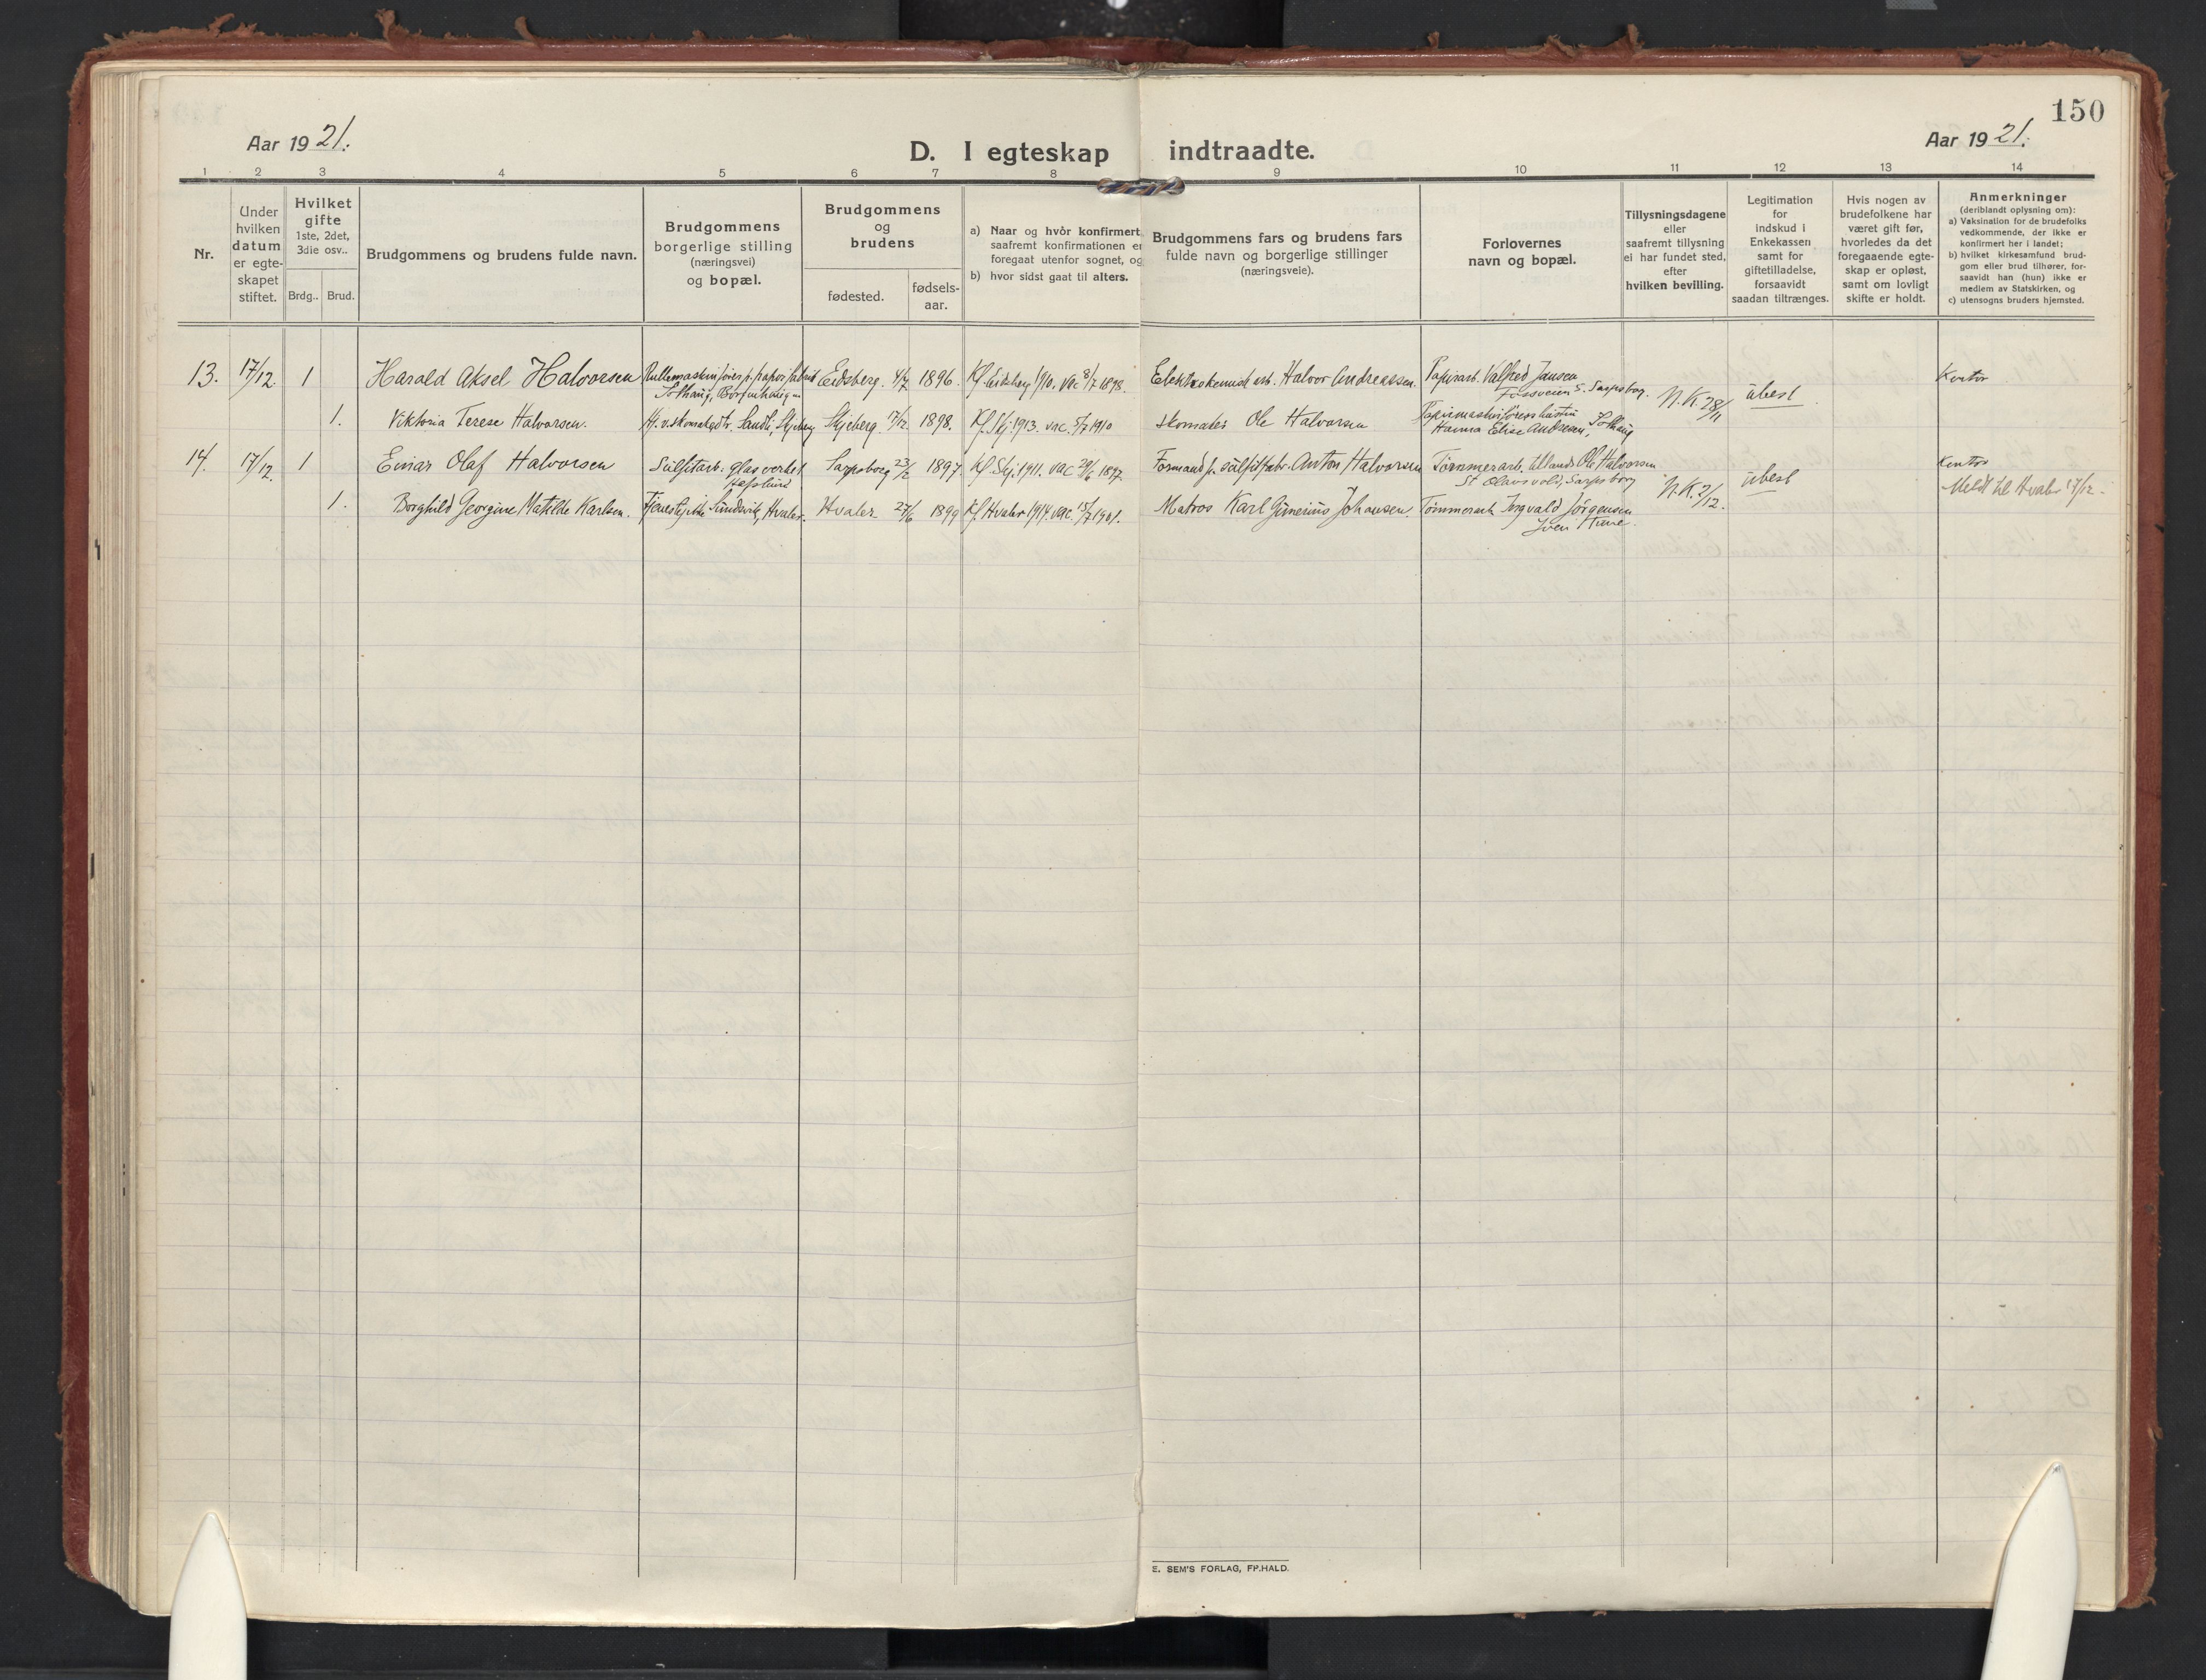 150
Aar 1921.
D. I egteskap indtraadte.
Aar 1921.
1 2 3 4 5 6 7 8 9 10 11 12 13 14
Nr.
Under
hvilken
datum
er egte-
skapet
stiftet.
Hvilket
gifte
1ste, 2det,
3die osv..
Brdg..
Brud.
Brudgommens og brudens fulde navn.
Brudgommens
borgerlige stilling
(næringsvei)
og bopæl.
Brudgommens
og
brudens
fødested.
fødsels-
aar.
a) Naar og hvor konfirmert,
saafremt konfirmationen er
foregaat utenfor sognet, og
b) hvor sidst gaat til alters.
Brudgommens fars og brudens fars
fulde navn og borgerlige stillinger
(næringsveie).
Forlovernes
navn og bopæl.
Tillysningsdagene
eller
saafremt tillysning
ei har fundet sted,
efter
hvilken bevilling.
Legitimation
for
indskud i
Enkekassen
samt for
giftetilladelse,
forsaavidt
saadan tiltrænges.
Hvis nogen av
brudefolkene har
været gift før,
hvorledes da det
foregaaende egte-
skap er opløst,
samt om lovligt
skifte er holdt.
Anmerkninger
(deriblandt oplysning om):
a) Vaksination for de brudefolks
vedkommende, der ikke er
konfirmert her i landet;
b) hvilket kirkesamfund brud-
gom eller brud tilhører, for-
saavidt han (hun) ikke er
medlem av Statskirken, og
c) utensogns bruders hjemsted.
13. 17/12. 1 Harald Aksel Halvorsen Rullemaskinfører p. papirfabrik Eidsberg. 4/2 1896. Kf. Eidsberg 1910. vac 8/7 1898. Elektrokemisk arb. Halvor Andreassen. Papirarb. Valfred Jansen N.K. 28/11 ubesl. Kontor
Solhaug, Borgenhaugen Fossveien S. Sarpsborg.
1. Viktoria Terese Halvorsen. Hj. v. skomakeri. Sandli, Skjeberg Skjeberg. 17/12 1898. Kf. Skj. 1913. vac. 5/7 1910 Skomaker Ole Halvorsen Papirmaskinførers hustru
Hanna Elise Andresen, Solhaug
14. 17/12. 1 Einar Olaf Halvorsen Sulfitarb. glasverket Sarpsborg 23/2 1897. Kf. Skj. 1911. vac 29/6 1897. Formand p. sulfitfabr. Anton Halvorsen Tømmerarb. tillands Ole Halvorsen N.K. 2/12. ubesl Kontor
Hafslund St Olavs vold, Sarpsborg Meldt til Hvaler 17/12.
1. Borghild Georgine Matilde Karlsen. Tjenestepike Sundsvik, Hvaler. Hvaler 27/6 1899 Kf. Hvaler 1914. vac. 15/7 1901. Matros Karl Gunerius Johansen. Tømmerarb. Ingvald Jörgensen
Tune.
E. SEM'S FORLAG, FR.HALD.